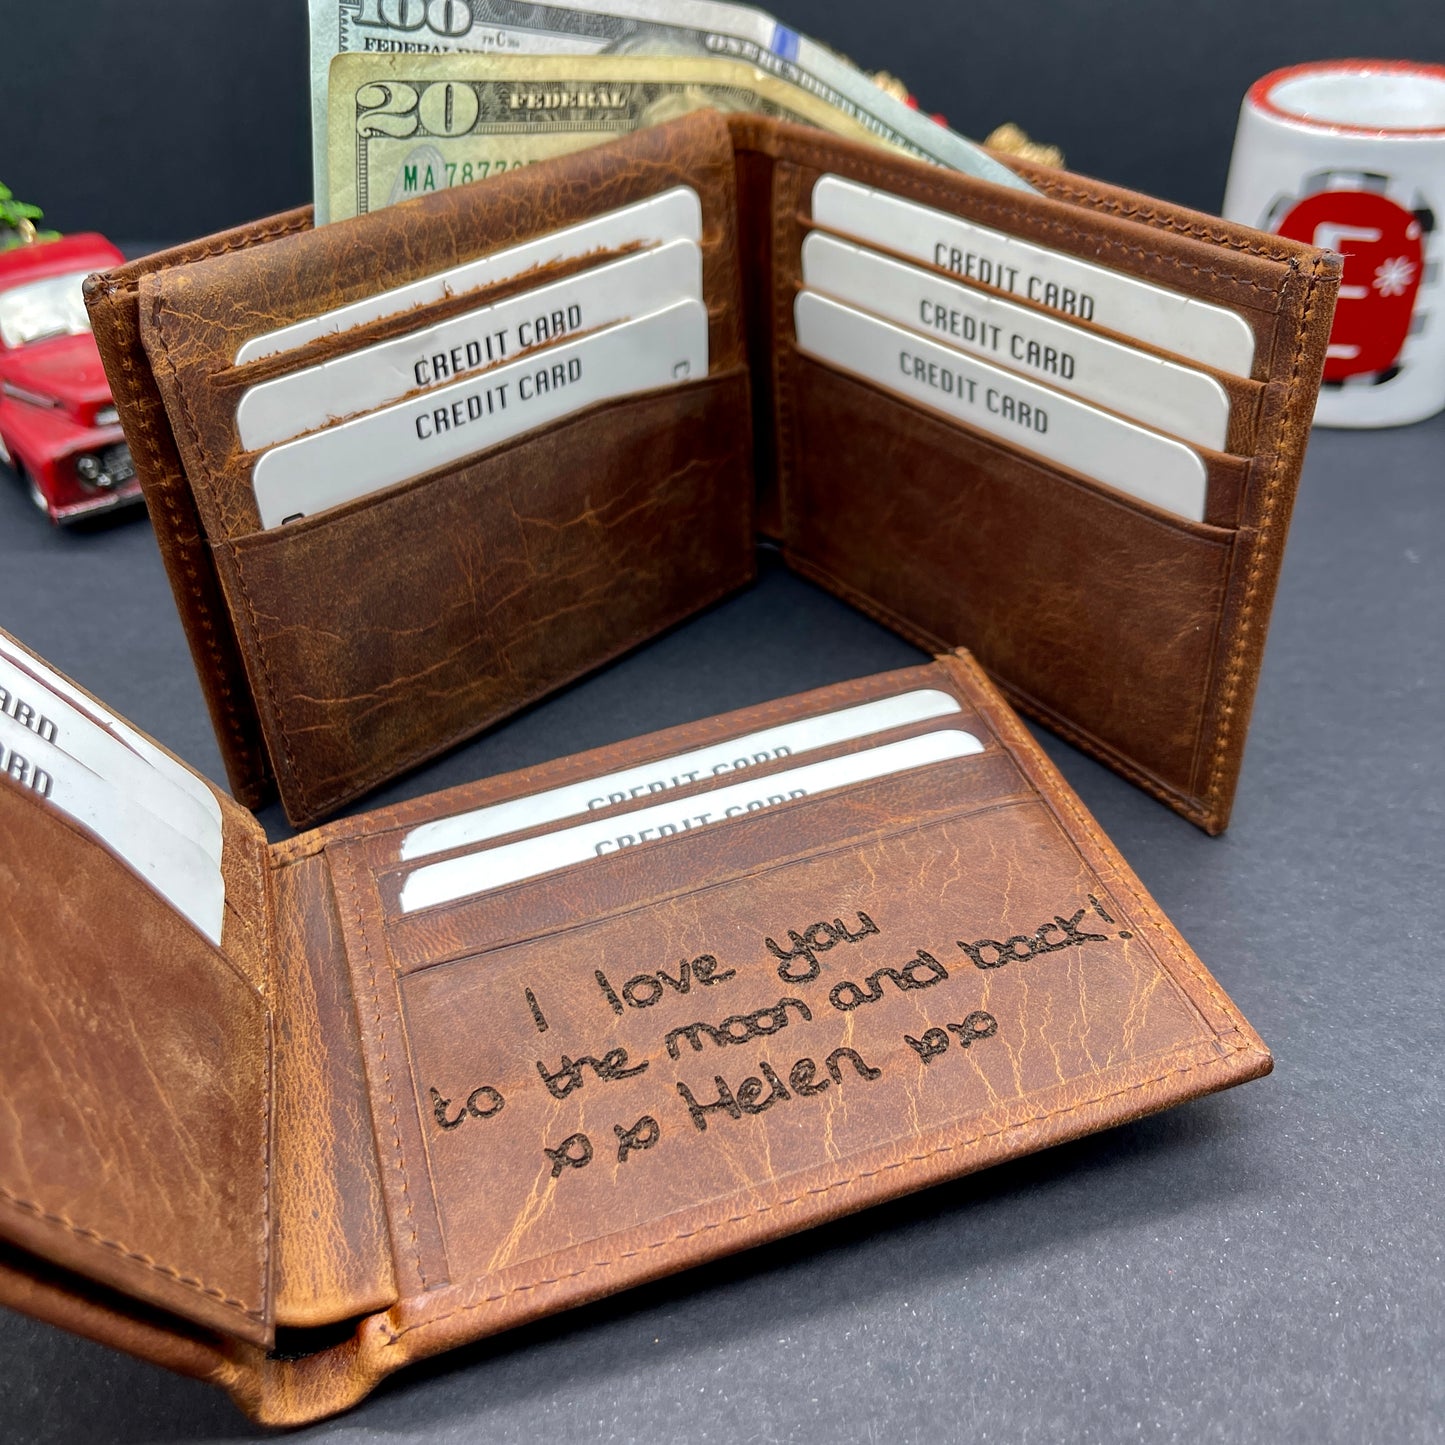 100
FEDERAL
ONE HUNDRED DOLLARS
20
FEDERAL
MA 7877
CREDIT CARD
CREDIT CARD
CREDIT CARD
CREDIT CARD
CREDIT CARD
E
ARD
ARD
CREDIT CARD
CREDIT CARD
I love you
to the moon and back!
xoxo Helen xoxo